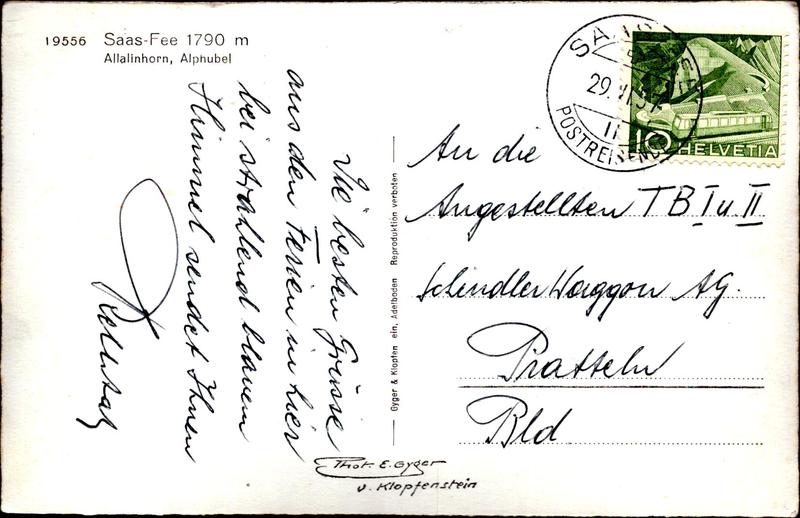 19556 Saas-Fee 1790 m
Allalinhorn, Alphubel
Die besten Grüsse
aus den Ferien in hier
bei strahlend blauem
Himmel sendet Ihnen
Gyger & Klopfenstein, Adelboden Reproduktion verboten
Phot. E. Gyger
u. Klopfenstein
29.VI.51
POSTREISEND
10 HELVETIA
An die
Angestellten TB I u II
Schindler Waggon AG.
Pratteln
Bld